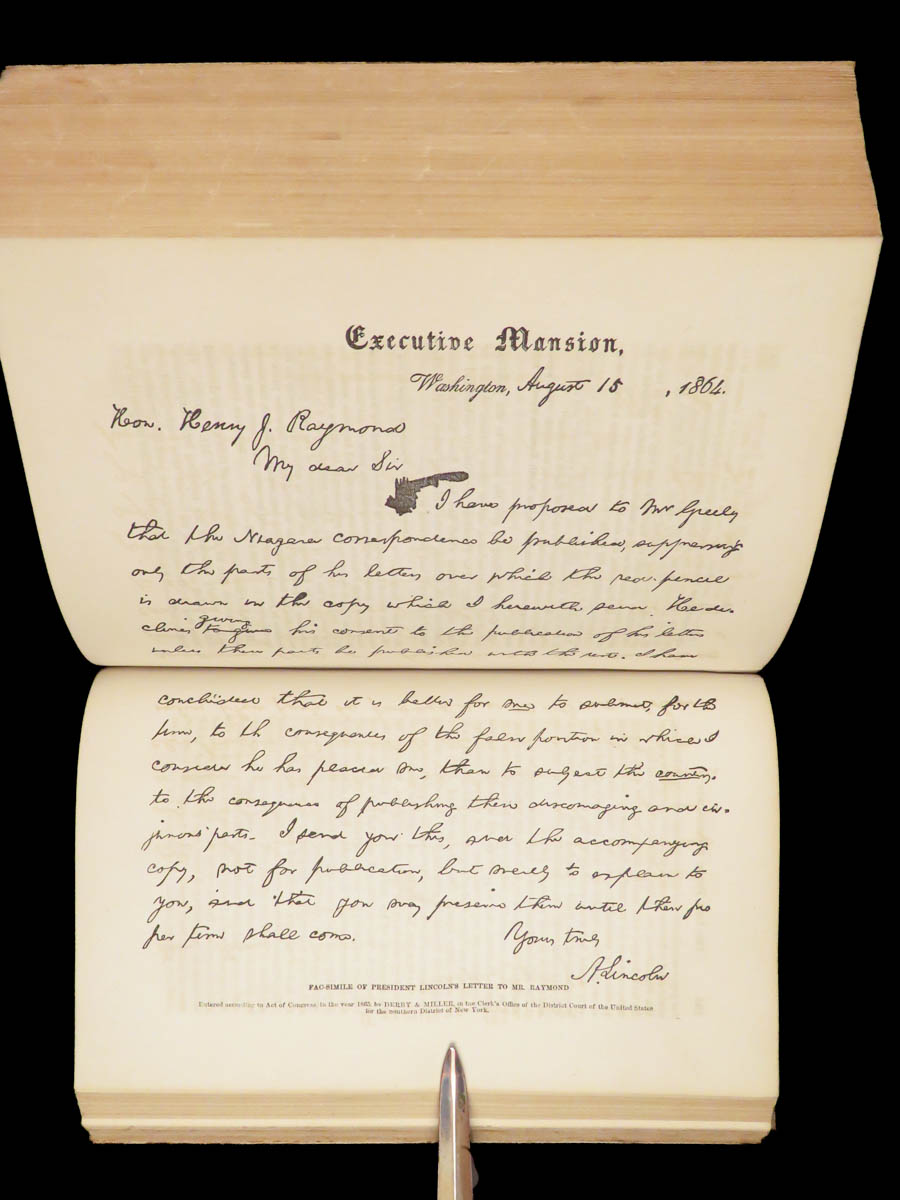 Executive Mansion,
Washington, August 15, 1864.
Hon. Henry J. Raymond
My dear Sir
I have proposed to Mr Greely
that the Niagara correspondence be published, suppressing
only the parts of his letters over which the red pencil
is drawn in the copy which I herewith send. He de-
giving
clines to give his consent to the publication of his letters
unless these parts be published with the rest. I have
concluded that it is better for me to submit, for the
time, to the consequences of the false position in which I
consider he has placed me, than to subject the country
to the consequences of publishing these discouraging and in-
jurious parts. I send you this, and the accompanying
copy, not for publication, but merely to explain to
you, and that you may preserve them until their pro
per time shall come.
Yours truly
A. Lincoln
FAC-SIMILE OF PRESIDENT LINCOLN'S LETTER TO MR. RAYMOND
Entered according to Act of Congress, in the year 1865, by DERBY & MILLER, in the Clerk's Office of the District Court of the United States
for the Southern District of New York.